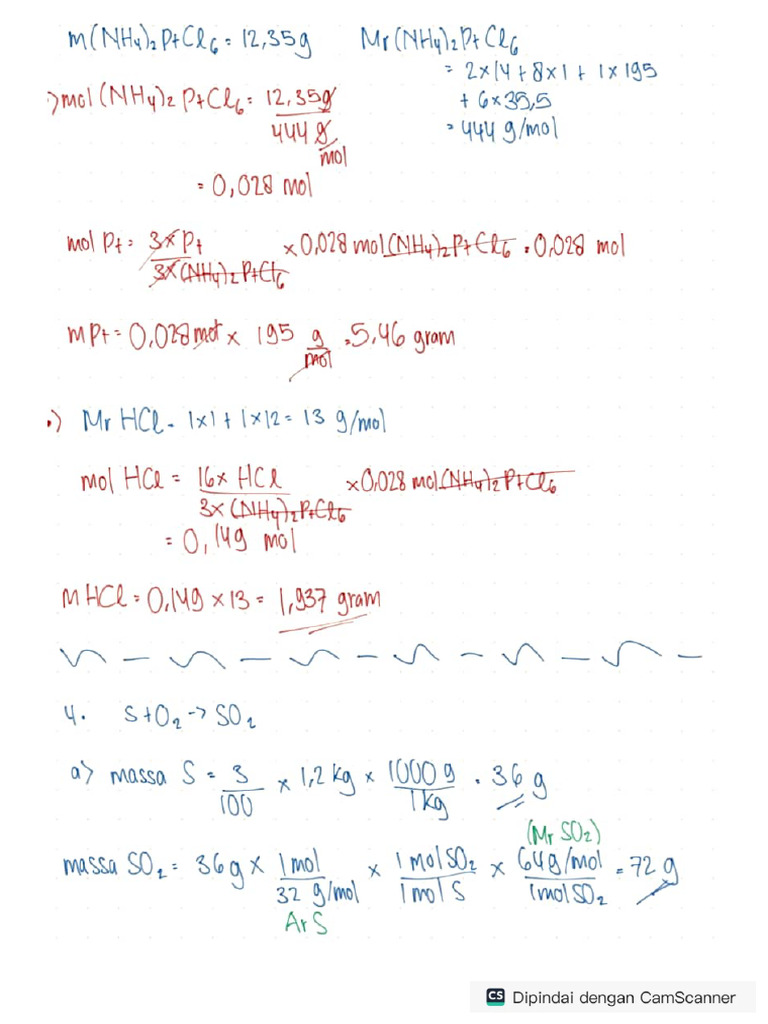 m(NH4)2PtCl6 = 12,35g Mr(NH4)2PtCl6
= 2×14 + 8×1 + 1×195
+ 6×35,5
= 444 g/mol
•) mol (NH4)2 PtCl6 = 12,35g / 444 g/mol
= 0,028 mol
mol Pt = 3× Pt / 3×(NH4)2PtCl6 × 0,028 mol (NH4)2PtCl6 = 0,028 mol
m Pt = 0,028 mol × 195 g/mol = 5,46 gram
•) Mr HCl = 1×1 + 1×12 = 13 g/mol
mol HCl = 16× HCl / 3× (NH4)2PtCl6 × 0,028 mol (NH4)2PtCl6
= 0,149 mol
m HCl = 0,149 × 13 = 1,937 gram
4. S+O2 → SO2
a) massa S = 3/100 × 1,2 kg × 1000 g / 1 kg = 36 g
(Mr SO2)
massa SO2 = 36g × 1 mol / 32 g/mol × 1 mol SO2 / 1 mol S × 64 g/mol / 1 mol SO2 = 72 g
Ar S
CS Dipindai dengan CamScanner